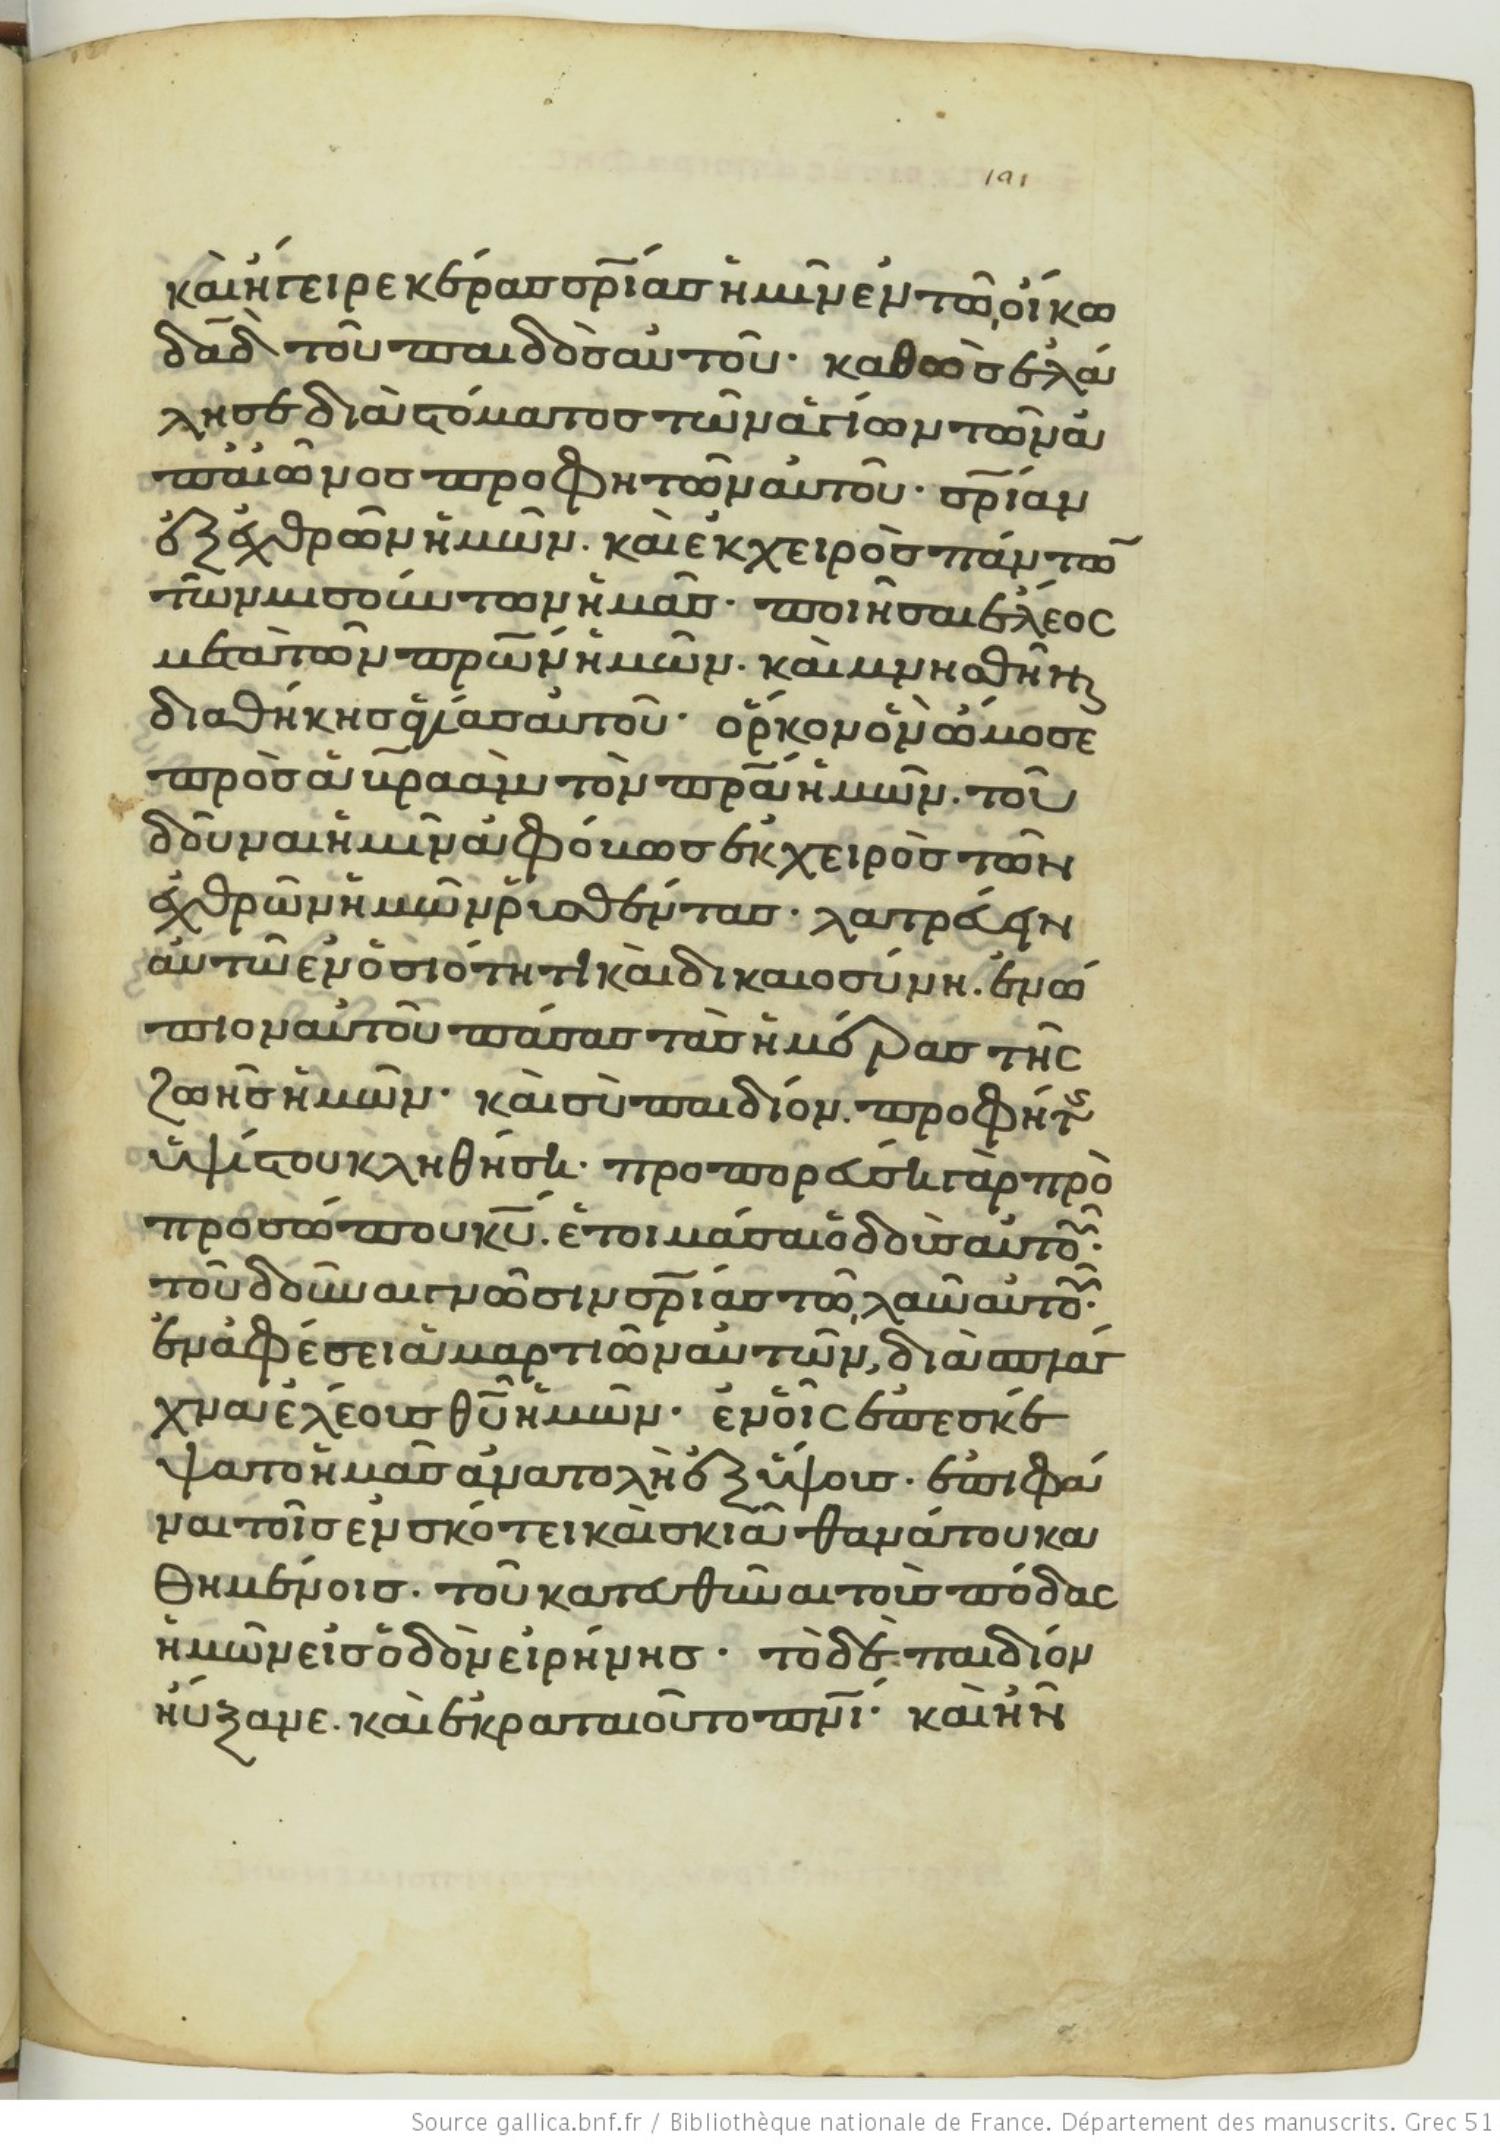 191
καὶ ἤγειρε κέρας σ̅ρ̅ίας ἡμῖν ἐν τῶ, οἴκω
δα̅δ̅ τοῦ παιδὸς αὐτοῦ· καθὼς ἐλά
λησε διὰ στόματος τῶν ἁγίων τῶν ἀ
π' αἰῶνος προφητῶν αὐτοῦ· σ̅ρ̅ίαν
ἐξ ἐχθρῶν ἡμῶν. καὶ ἐκ χειρὸς πάντω̅
τῶν μισούντων ἡμᾶς· ποιῆσαι ἔλεος
μετὰ τῶν π̅ρ̅ων ἡμῶν. καὶ μνησθῆναι
διαθήκης ἁγίας αὐτοῦ· ὅρκον ὃν ὤμοσε
πρὸς ἀβραὰμ τὸν π̅ρ̅α ἡμῶν. τοῦ
δοῦναι ἡμῖν ἀφόβως ἐκ χειρὸς τῶν
ἐχθρῶν ἡμῶν ῥυσθέντας· λατρεύειν
αὐτῶ ἐν ὁσιότητι καὶ δικαιοσύνη. ἐνώ
πιον αὐτοῦ πάσας τὰς ἡμέρας τῆς
ζωῆς ἡμῶν· καὶ σὺ παιδίον. προφήτης
ὑψίστου κληθήση· προπορεύση γὰρ πρὸ
προσώπου κ̅υ̅. ἑτοιμάσαι ὁδοὺς αὐτοῦ·
τοῦ δοῦναι γνῶσιν σ̅ρ̅ίας τῶ, λαῶ αὐτοῦ·
ἐν ἀφέσει ἁμαρτιῶν αὐτῶν, διὰ σπλάγ
χνα ἐλέους θ̅υ̅ ἡμῶν· ἐν οἷς ἐπεσκέ
ψατο ἡμᾶς ἀνατολὴ ἐξ ὕψους. ἐπιφᾶ
ναι τοῖς ἐν σκότει καὶ σκιᾶ θανάτου κα
θημένοις. τοῦ κατευθῦναι τοὺς πόδας
ἡμῶν εἰς ὁδὸν εἰρήνης· τὸ δὲ παιδίον
ηὔξανε. καὶ ἐκραταιοῦτο π̅ν̅ι̅· καὶ ἦν
Source gallica.bnf.fr / Bibliothèque nationale de France. Département des manuscrits. Grec 51